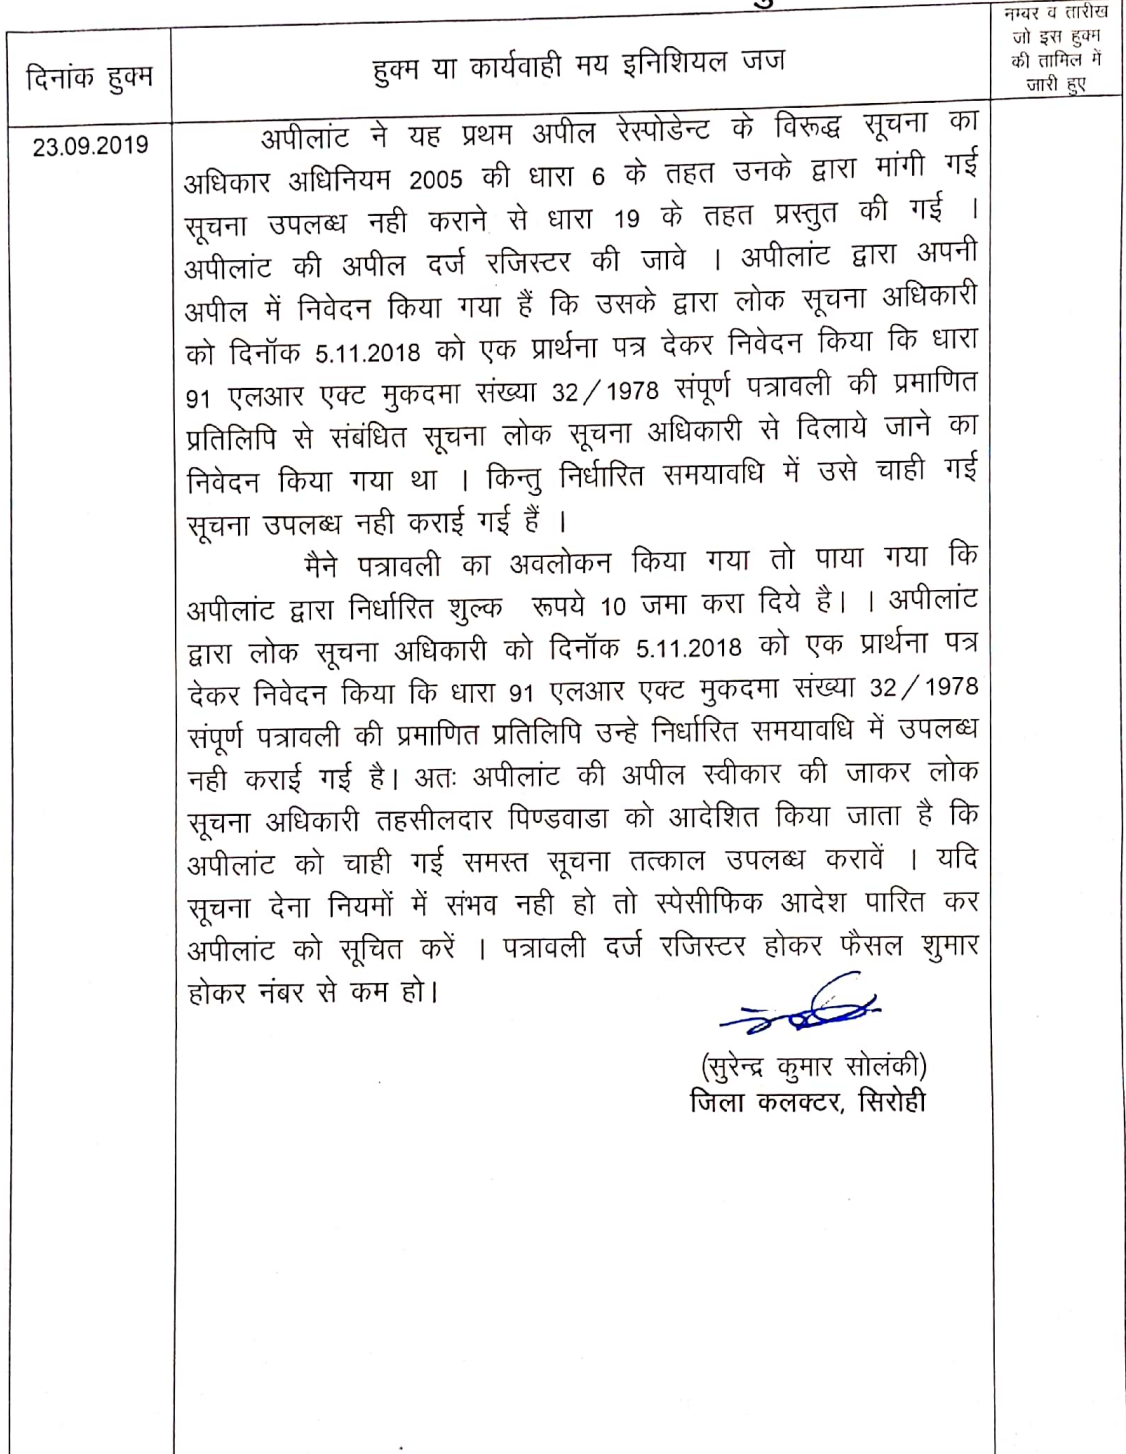 नम्बर व तारीख
जो इस हुक्म
की तामिल में
जारी हुए
दिनांक हुक्म
हुक्म या कार्यवाही मय इनिशियल जज
23.09.2019
अपीलांट ने यह प्रथम अपील रेस्पोडेन्ट के विरूद्ध सूचना का
अधिकार अधिनियम 2005 की धारा 6 के तहत उनके द्वारा मांगी गई
सूचना उपलब्ध नही कराने से धारा 19 के तहत प्रस्तुत की गई ।
अपीलांट की अपील दर्ज रजिस्टर की जावे । अपीलांट द्वारा अपनी
अपील में निवेदन किया गया हैं कि उसके द्वारा लोक सूचना अधिकारी
को दिनॉक 5.11.2018 को एक प्रार्थना पत्र देकर निवेदन किया कि धारा
91 एलआर एक्ट मुकदमा संख्या 32/1978 संपूर्ण पत्रावली की प्रमाणित
प्रतिलिपि से संबंधित सूचना लोक सूचना अधिकारी से दिलाये जाने का
निवेदन किया गया था । किन्तु निर्धारित समयावधि में उसे चाही गई
सूचना उपलब्ध नही कराई गई हैं ।
मैने पत्रावली का अवलोकन किया गया तो पाया गया कि
अपीलांट द्वारा निर्धारित शुल्क रूपये 10 जमा करा दिये है। । अपीलांट
द्वारा लोक सूचना अधिकारी को दिनॉक 5.11.2018 को एक प्रार्थना पत्र
देकर निवेदन किया कि धारा 91 एलआर एक्ट मुकदमा संख्या 32/1978
संपूर्ण पत्रावली की प्रमाणित प्रतिलिपि उन्हे निर्धारित समयावधि में उपलब्ध
नही कराई गई है। अतः अपीलांट की अपील स्वीकार की जाकर लोक
सूचना अधिकारी तहसीलदार पिण्डवाडा को आदेशित किया जाता है कि
अपीलांट को चाही गई समस्त सूचना तत्काल उपलब्ध करावें । यदि
सूचना देना नियमों में संभव नही हो तो स्पेसीफिक आदेश पारित कर
अपीलांट को सूचित करें । पत्रावली दर्ज रजिस्टर होकर फैसल शुमार
होकर नंबर से कम हो।
(सुरेन्द्र कुमार सोलंकी)
जिला कलक्टर, सिरोही